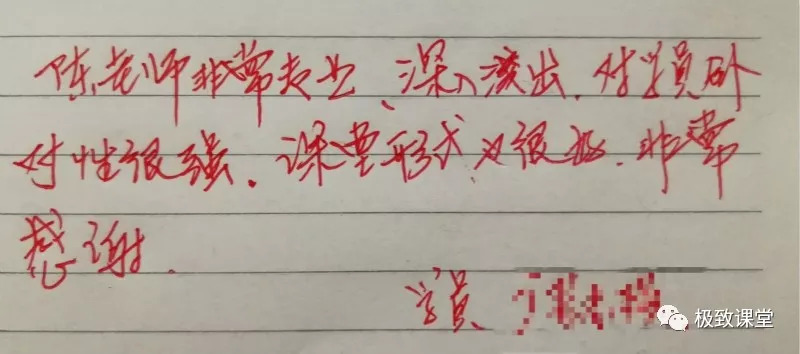 陈老师非常专业、深入浅出.对学员
对性很强.课堂形式又很.非常
感谢.
学员
极致课堂